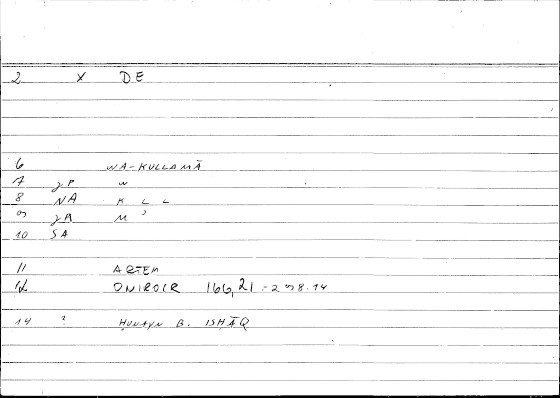 2 X DE
6 WA-KULLAMĀ
7 JP W
8 NA K L L
9 JA M ʾ
10 SA
11 ARTEM
12 ONIROCR 166,21 = 298.14
14 ? ḤUNAYN B. ISḤĀQ